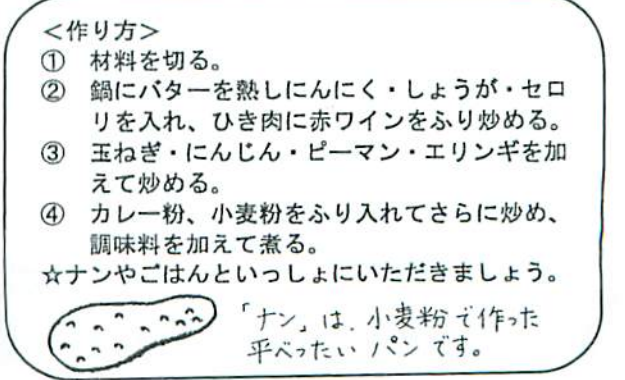 <作り方>
① 材料を切る。
② 鍋にバターを熱しにんにく・しょうが・セロ
リを入れ、ひき肉に赤ワインをふり炒める。
③ 玉ねぎ・にんじん・ピーマン・エリンギを加
えて炒める。
④ カレー粉、小麦粉をふり入れてさらに炒め、
調味料を加えて煮る。
☆ナンやごはんといっしょにいただきましょう。
「ナン」は、小麦粉で作った
平べったいパンです。